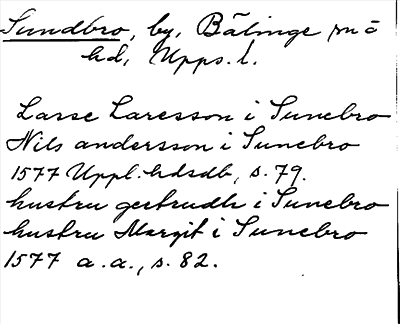 Sundbro, by, Bälinge sn o
hd, Upps. l.
Lasse Laresson i Sunebro
Nils andersson i Sunebro
1577 Uppl. hdsdb, s. 79.
hustru gertrudh i Sunebro
hustru Margit i Sunebro
1577 a.a., s. 82.